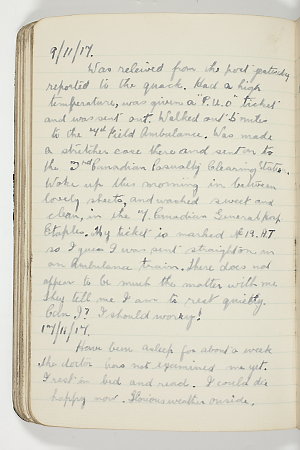 9/11/17.
Was relieved from the post yesterday
reported to the quack. Had a high
temperature, was given a "P.U.O" ticket
and was sent out. Walked out 5 miles
to the 4th Field Ambulance. Was made
a stretcher case there and sent on to
the 3rd Canadian Casualty Clearing Station.
Woke up this morning in between
lovely sheets, and washed sweet and
clean, in the 7. Canadian General Hosp.
Etaples. My ticket is marked N 19. A.T
so I guess I was sent straight on in
an ambulance train. There does not
appear to be much the matter with me
They tell me I am to rest quietly.
Can I? I should worry!
17/11/17.
Have been asleep for about a week
the doctor has not examined me yet.
I rest in bed and read. I could die
happy now. Glorious weather outside.